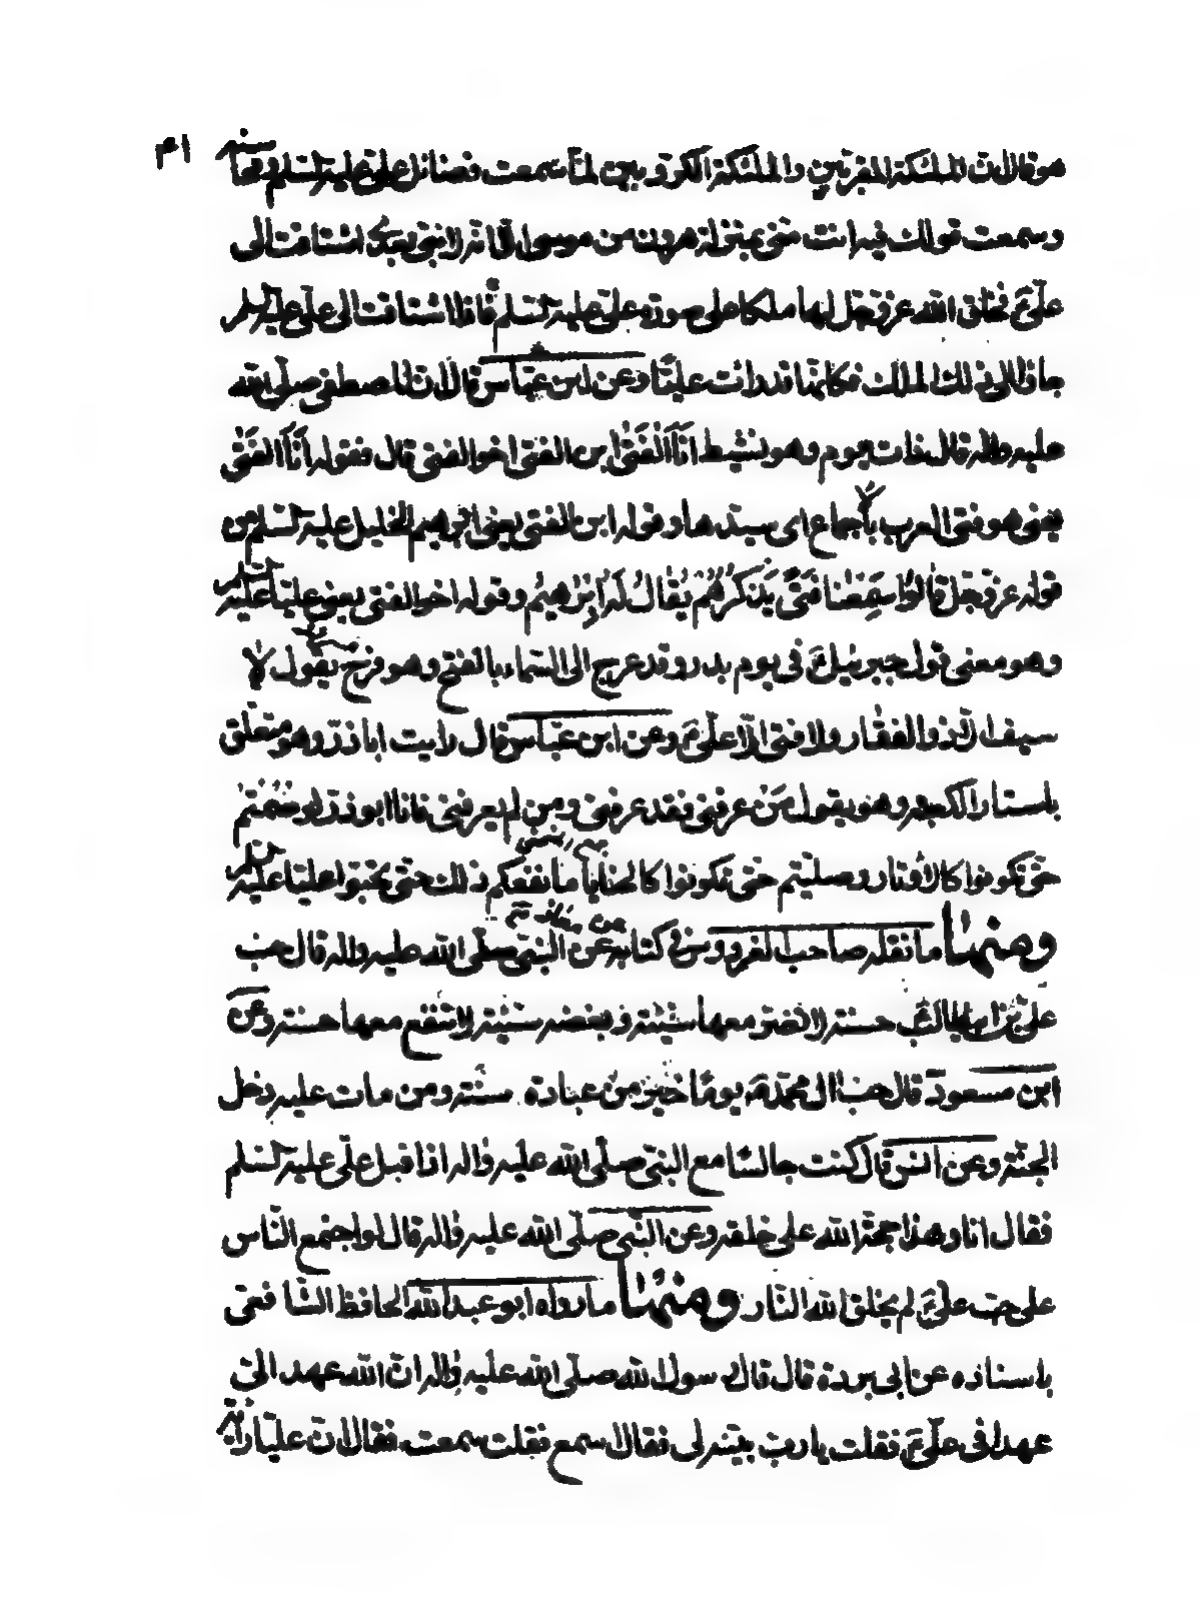 هو قال ان الملئكة المقربين والملئكة الكروبيين لما سمعت فضائل علي عليه السلام
وسمعت قولك فيه انت مني بمنزلة هرون من موسى الا انه لا نبي بعدي اشتاقت الى
عليّ ع فخلق الله عز وجل لها ملكا على صورة علي عليه السلم فاذا اشتاقت الى علي عليه السلم
جاؤا الى ذلك الملك فكانما قد رات عليا وعن ابن عباس قال ان المصطفى صلى الله
عليه واله قال ذات يوم وهو نشيط اَنَا الْفَتَى ابن الفتى اخو الفتى قال فقوله اَنَا الفَتَى
يعني هو فتى العرب باجماع اى سيدها وقوله ابن الفتى يعني ابرهيم الخليل عليه السلم من
قوله عز وجل قالُوا سَمِعْنا فَتًى يَذْكُرُهُمْ يُقالُ لَهُ اِبْرهيمُ وقوله اخو الفتى يعني عليا عليه السلم
وهو معنى قول جبرئيل ع في يوم بدر وقد عرج الى السماء بالفتح وهو فرح يقول لا
سيف الا ذو الفقار ولا فتى الا علي ع وعن ابن عباس قال رايت اباذر وهو متعلق
باستار الكعبه وهو يقول مَنْ عرفني فقد عرفني ومن لم يعرفني فانا ابوذر لو صُمْتم
حتى تكونوا كالاوتار وصليتم حتى تكونوا كالحنايا ما نفعكم ذلك حتى تحبوا عليا عليه السلم
ومنها ما نقله صاحب الفردوس في كتابه عن النبي صلى الله عليه واله قال حب
علي بن ابيطالب حسنة لا تضر معها سيئة وبغضه سيئة لا تنفع معها حسنة وعن
ابن مسعود قال حب ال محمد ص يومًا خير من عبادة سنة ومن مات عليه دخل
الجنة وعن انس قال كنت جالسًا مع النبي صلى الله عليه واله اذا قبل علي عليه السلم
فقال انا وهذا حجة الله على خلقه وعن النبي صلى الله عليه واله قال لو اجتمع الناس
على حب علي ع لم يخلق الله النار ومنها ما رواه ابو عبد الله الحافظ الشافعي
باسناده عن ابى بردة قال قال رسول الله صلى الله عليه واله ان الله عهد الي
عهدا في علي ع فقلت يا رب بينه لي فقال اسمع فقلت سمعت فقال ان عليا راية